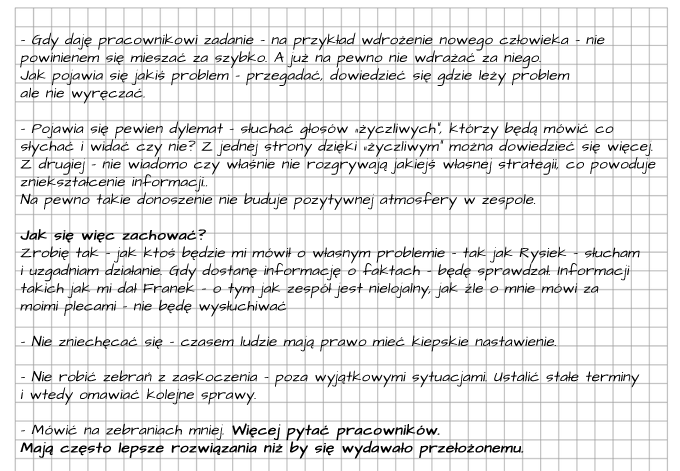 - Gdy daję pracownikowi zadanie - na przykład wdrożenie nowego człowieka - nie
powinienem się mieszać za szybko. A już na pewno nie wdrażać za niego.
Jak pojawia się jakiś problem - przegadać, dowiedzieć się gdzie leży problem
ale nie wyręczać.
- Pojawia się pewien dylemat - słuchać głosów „życzliwych", którzy będą mówić co
słychać i widać czy nie? Z jednej strony dzięki „życzliwym" można dowiedzieć się więcej.
Z drugiej - nie wiadomo czy właśnie nie rozgrywają jakiejś własnej strategii, co powoduje
zniekształcenie informacji..
Na pewno takie donoszenie nie buduje pozytywnej atmosfery w zespole.
Jak się więc zachować?
Zrobię tak - jak ktoś będzie mi mówił o własnym problemie - tak jak Rysiek - słucham
i uzgadniam działanie. Gdy dostanę informację o faktach - będę sprawdzał. Informacji
takich jak mi dał Franek - o tym jak zespół jest nielojalny, jak źle o mnie mówi za
moimi plecami - nie będę wysłuchiwać
- Nie zniechęcać się - czasem ludzie mają prawo mieć kiepskie nastawienie.
- Nie robić zebrań z zaskoczenia - poza wyjątkowymi sytuacjami. Ustalić stałe terminy
i wtedy omawiać kolejne sprawy.
- Mówić na zebraniach mniej. Więcej pytać pracowników.
Mają często lepsze rozwiązania niż by się wydawało przełożonemu.